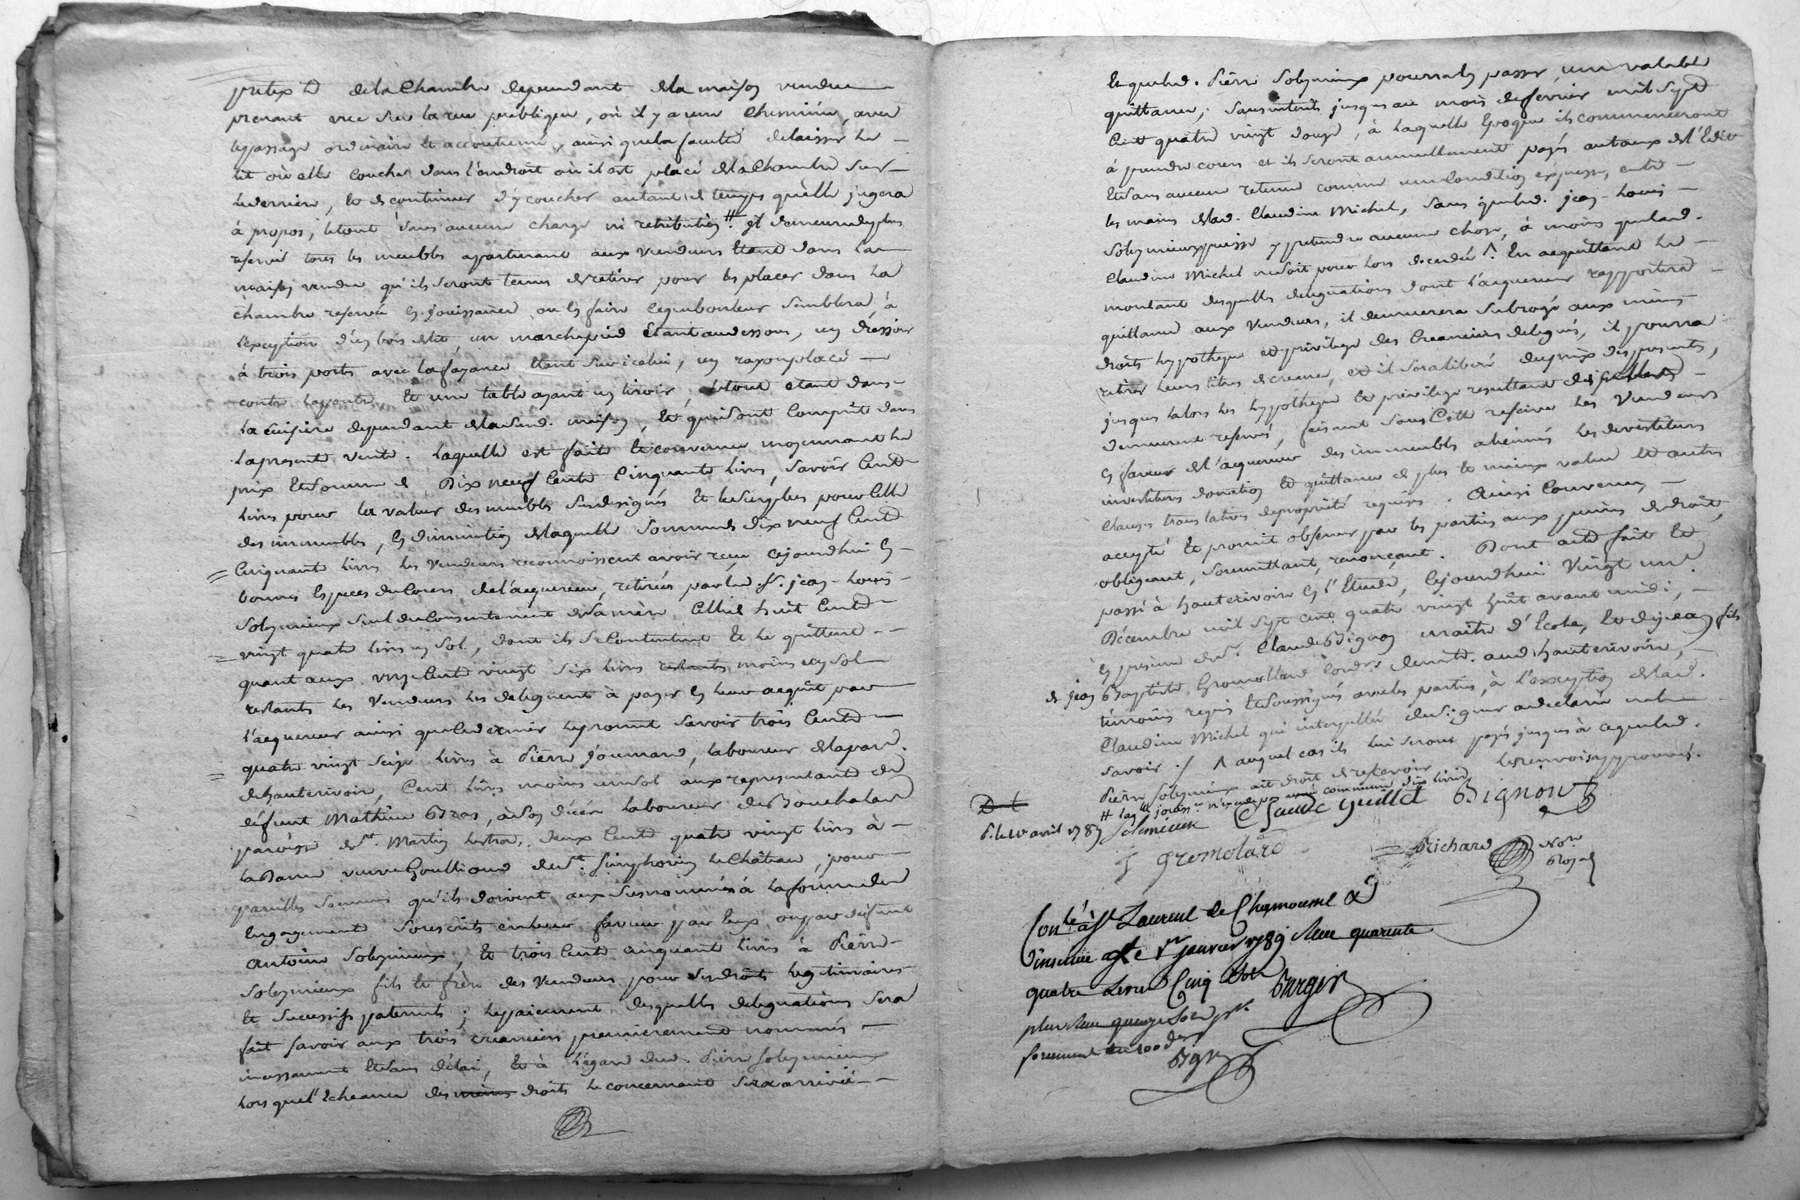 pretexte de la Chambre dependant de la maison vendue
prenant vue sur la rue publique, où il y a une Cheminée, avec
le passage ordinaire et accoutumé, ainsi que la faculté de laisser le
lit où elle couche dans l'endroit où il est placé de la Chambre sur
le derriere, et de continuer d'y coucher autant de temps qu'elle jugera
à propos, le tout sans aucune charge ni retribution # il demeure de plus
reservé tous les meubles appartenant aux vendeurs etant dans la
maison vendue qu'ils seront tenus de retirer pour les placer dans la
chambre reservée en jouissance ou en faire ce que bon leur semblera à
l'exception d'un bois de lit, un marchepied etant au dessous, un dressoir
à trois portes avec la fayance etant sur icelui, un rayon placé
contre la porte et une table ayant un tiroir, le tout etant dans
la cuisine dependant de la susd. maison, et qui sont compris dans
la presente vente. laquelle est faite et convenue moyennant le
prix et somme de Dix neuf Cent Cinquante livres, savoir Cent
livres pour la valeur des meubles susdesignés et le surplus pour celle
des immeubles, en diminution de laquelle somme de dix neuf Cent
Cinquante livres les vendeurs reconnoissent avoir reçu cejourdhui en
bonnes Especes du Cours de l'acquereur, retirées par led. Sr. jean-Louis
Soleymieux seul du consentement de sa mère Celle de huit Cent
vingt quatre livres un sol, dont ils se contentent et le quittent
quant aux onze Cent vingt six livres restants moins un sol
restants les vendeurs les deleguent à payer en leur acquit par
l'acquereur ainsi que ce dernier le promet savoir trois Cent
quatre vingt seize livres à Pierre Journard, laboureur de la par.
de hauterivoire, Cent livres moins un sol aux representants de
defunt Mathieu Bras, à son décès laboureur de
paroisse de St. Martin lestra, deux Cent quatre vingt livres à
la Dame veuve Goullioud de St. Simphorien le Château, pour
pareilles sommes qu'ils doivent aux susnommés à la forme des
Engagements souscrits en leur faveur par Eux ou par defunt
Antoine Soleymieux, et trois Cent cinquante livres à Pierre
Soleymieux fils et frère des Vendeurs pour ses droits legitimaires
et successifs paternels; le payement desquelles delegations sera
fait savoir aux trois creanciers premierement nommés
incessamment et sans delai, et à l'égard dud. Pierre Soleymieux
lors que l'echeance des mêmes droits le concernant sera arrivée
et que led. Pierre Soleymieux pourra en passer une valable
quittance, sans interets jusques au mois de fevrier mil sept
Cent quatre vingt douze, à laquelle Epoque ils commenceront
à prendre cours et ils seront annuellement payés au taux de l'Edit
et sans aucune retenue comme une condition expresse, entre
les mains de lad. Claudine Michel, sans que led. jean-Louis
Soleymieux puisse y pretendre aucune chose, à moins que lad.
Claudine Michel ne soit pour lors decedée ^. En acquittant le
montant desquelles delegations dont l'acquereur rapportera
quittance aux Vendeurs, il demeurera subrogé aux mêmes
droits hypotheque et privilege des Creanciers delegués, il pourra
retirer leurs titres de creance, et il sera liberé du prix des presentes,
jusques alors les hypotheque et privilege resultant des
demeurent reservés, faisant sous cette reserve les Vendeurs
en faveur de l'acquereur des immeubles alienés les devestiture
investiture donation et quittance de plus et mieux value et autres
clauses translatives de propriété requises. Ainsi convenu,
accepté et promis observer par les parties aux peines de droit,
obligeant, soumettant, renonçant. Dont acte fait et
passé à hauterivoire en l'Etude, Cejourdhui Vingt un
Décembre mil sept cent quatre vingt huit avant midi,
En presence de Sr. Claude Bignon maître d'Ecole, et de jean fils
de jean Baptiste Gromollard Cordr. demt. aud. hauterivoire,
témoins requis et soussignés avec les parties, à l'exception de lad.
Claudine Michel qui interpellée de signer a declaré ne le
savoir ./. ^ auquel cas ils lui seront payés jusques à ce que led.
Pierre Soleymieux ait droit de recevoir les renvois approuvés.
# lad. jouiss.ce n'excede dix livres
D. le 10 avril 1789 Solemieux Claude Guillet Bignon
J Gremolard Richard Nore. Royal
Con.lé à St Laurent de Chamousset &
insinué aplé 1er janvier 1789 Reçu quarante
quatre livres Cinq sols
plus Reçu quinze sols pr.
forment du 100 des Burgin
Bgn